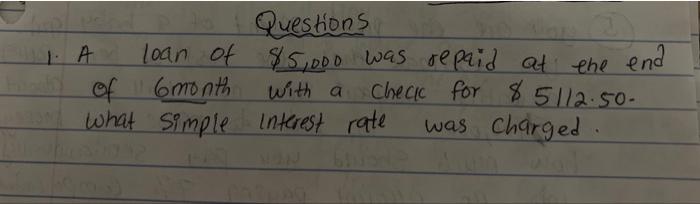 Questions
1. A loan of $5,000 was repaid at the end
of 6month with a check for $5112.50.
What Simple interest rate was charged.